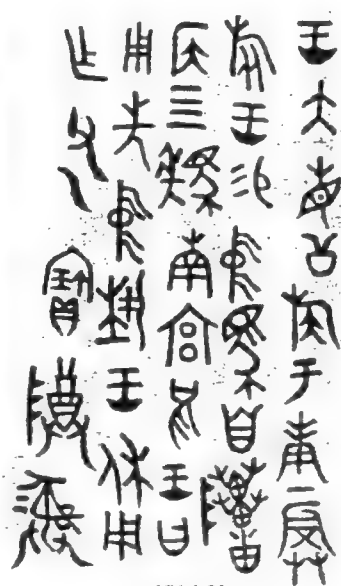 王大省公族于庚
旅王易中馬自
侯三南宮兄王曰
用先中埶王休用
乍父乙寶尊彝